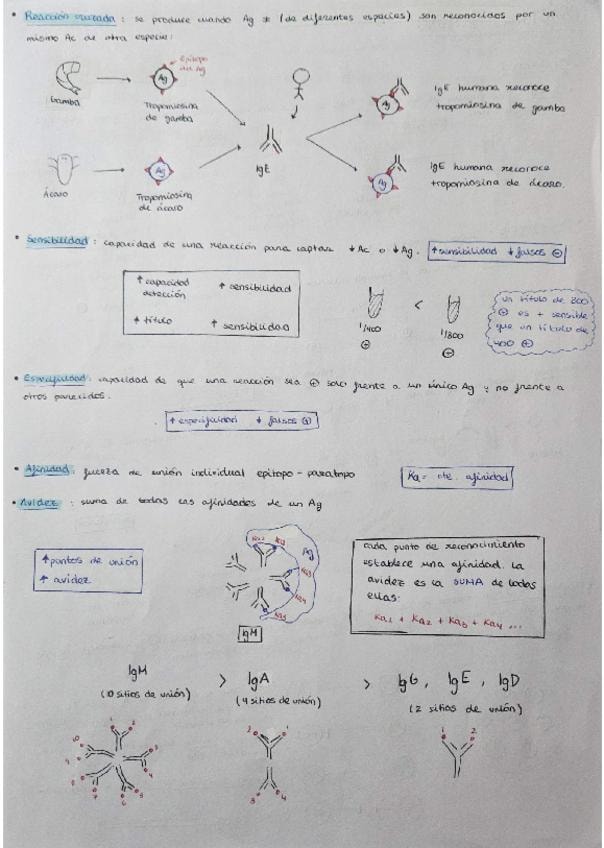 • Reacción cruzada: se produce cuando Ag ≠ (de diferentes especies) son reconocidos por un
mismo Ac de otra especie:
epítopo
del Ag
Gamba
Ag
Tropomiosina
de gamba
Ag
IgE humana reconoce
tropomiosina de gamba
IgE
Ácaro
Ag
Tropomiosina
de ácaro
Ag
IgE humana reconoce
tropomiosina de ácaro.
• Sensibilidad: capacidad de una reacción para captar ↓ Ac o ↓ Ag. ↑ sensibilidad ↓ falsos ⊖
↑ capacidad
detección
↑ sensibilidad
↑ título ↑ sensibilidad
<
1/400
⊕
1/800
⊕
un título de 800
⊕ es + sensible
que un título de
400 ⊕
• Especificidad: capacidad de que una reacción sea ⊕ solo frente a un único Ag y no frente a
otros parecidos.
↑ especificidad ↓ falsos ⊕
• Afinidad: fuerza de unión individual epítopo - paratopo
Ka = cte. afinidad
• Avidez: suma de todas las afinidades de un Ag
↑ puntos de unión
↑ avidez
Ka2 Ka1 Ag
Ka3
Ka4
Ka5
IgM
cada punto de reconocimiento
establece una afinidad. La
avidez es la SUMA de todas
ellas:
Ka1 + Ka2 + Ka3 + Ka4 ...
IgM > IgA > IgG, IgE, IgD
(10 sitios de unión) (4 sitios de unión) (2 sitios de unión)
1 2 3 4 5 6 7 8 9 10
2 1
3 4
1 2